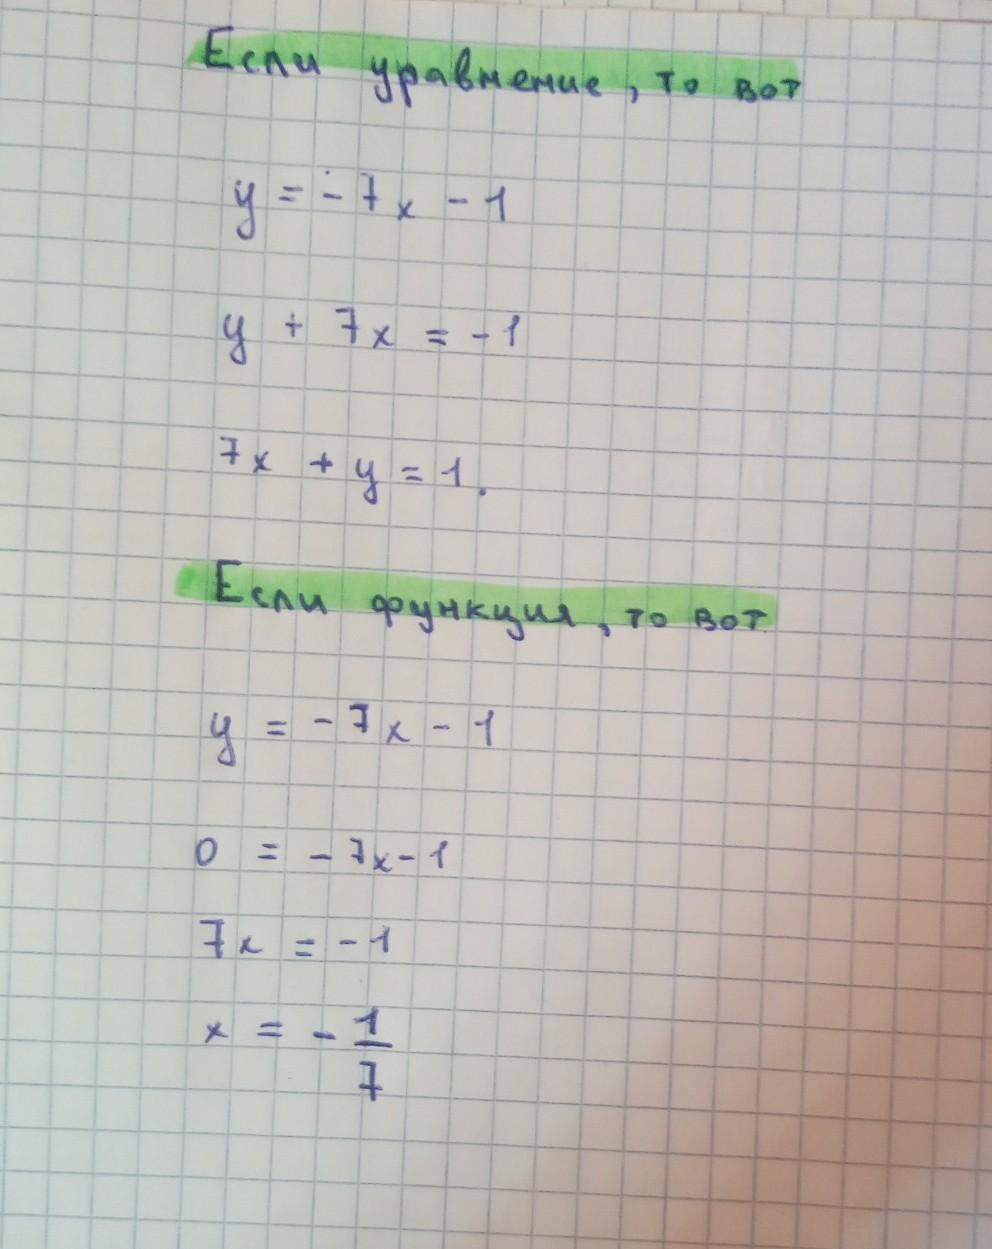 Если уравнение, то вот
y = -7x - 1
y + 7x = -1
7x + y = 1.
Если функция, то вот
y = -7x - 1
0 = -7x-1
7x = -1
x = - 1/7